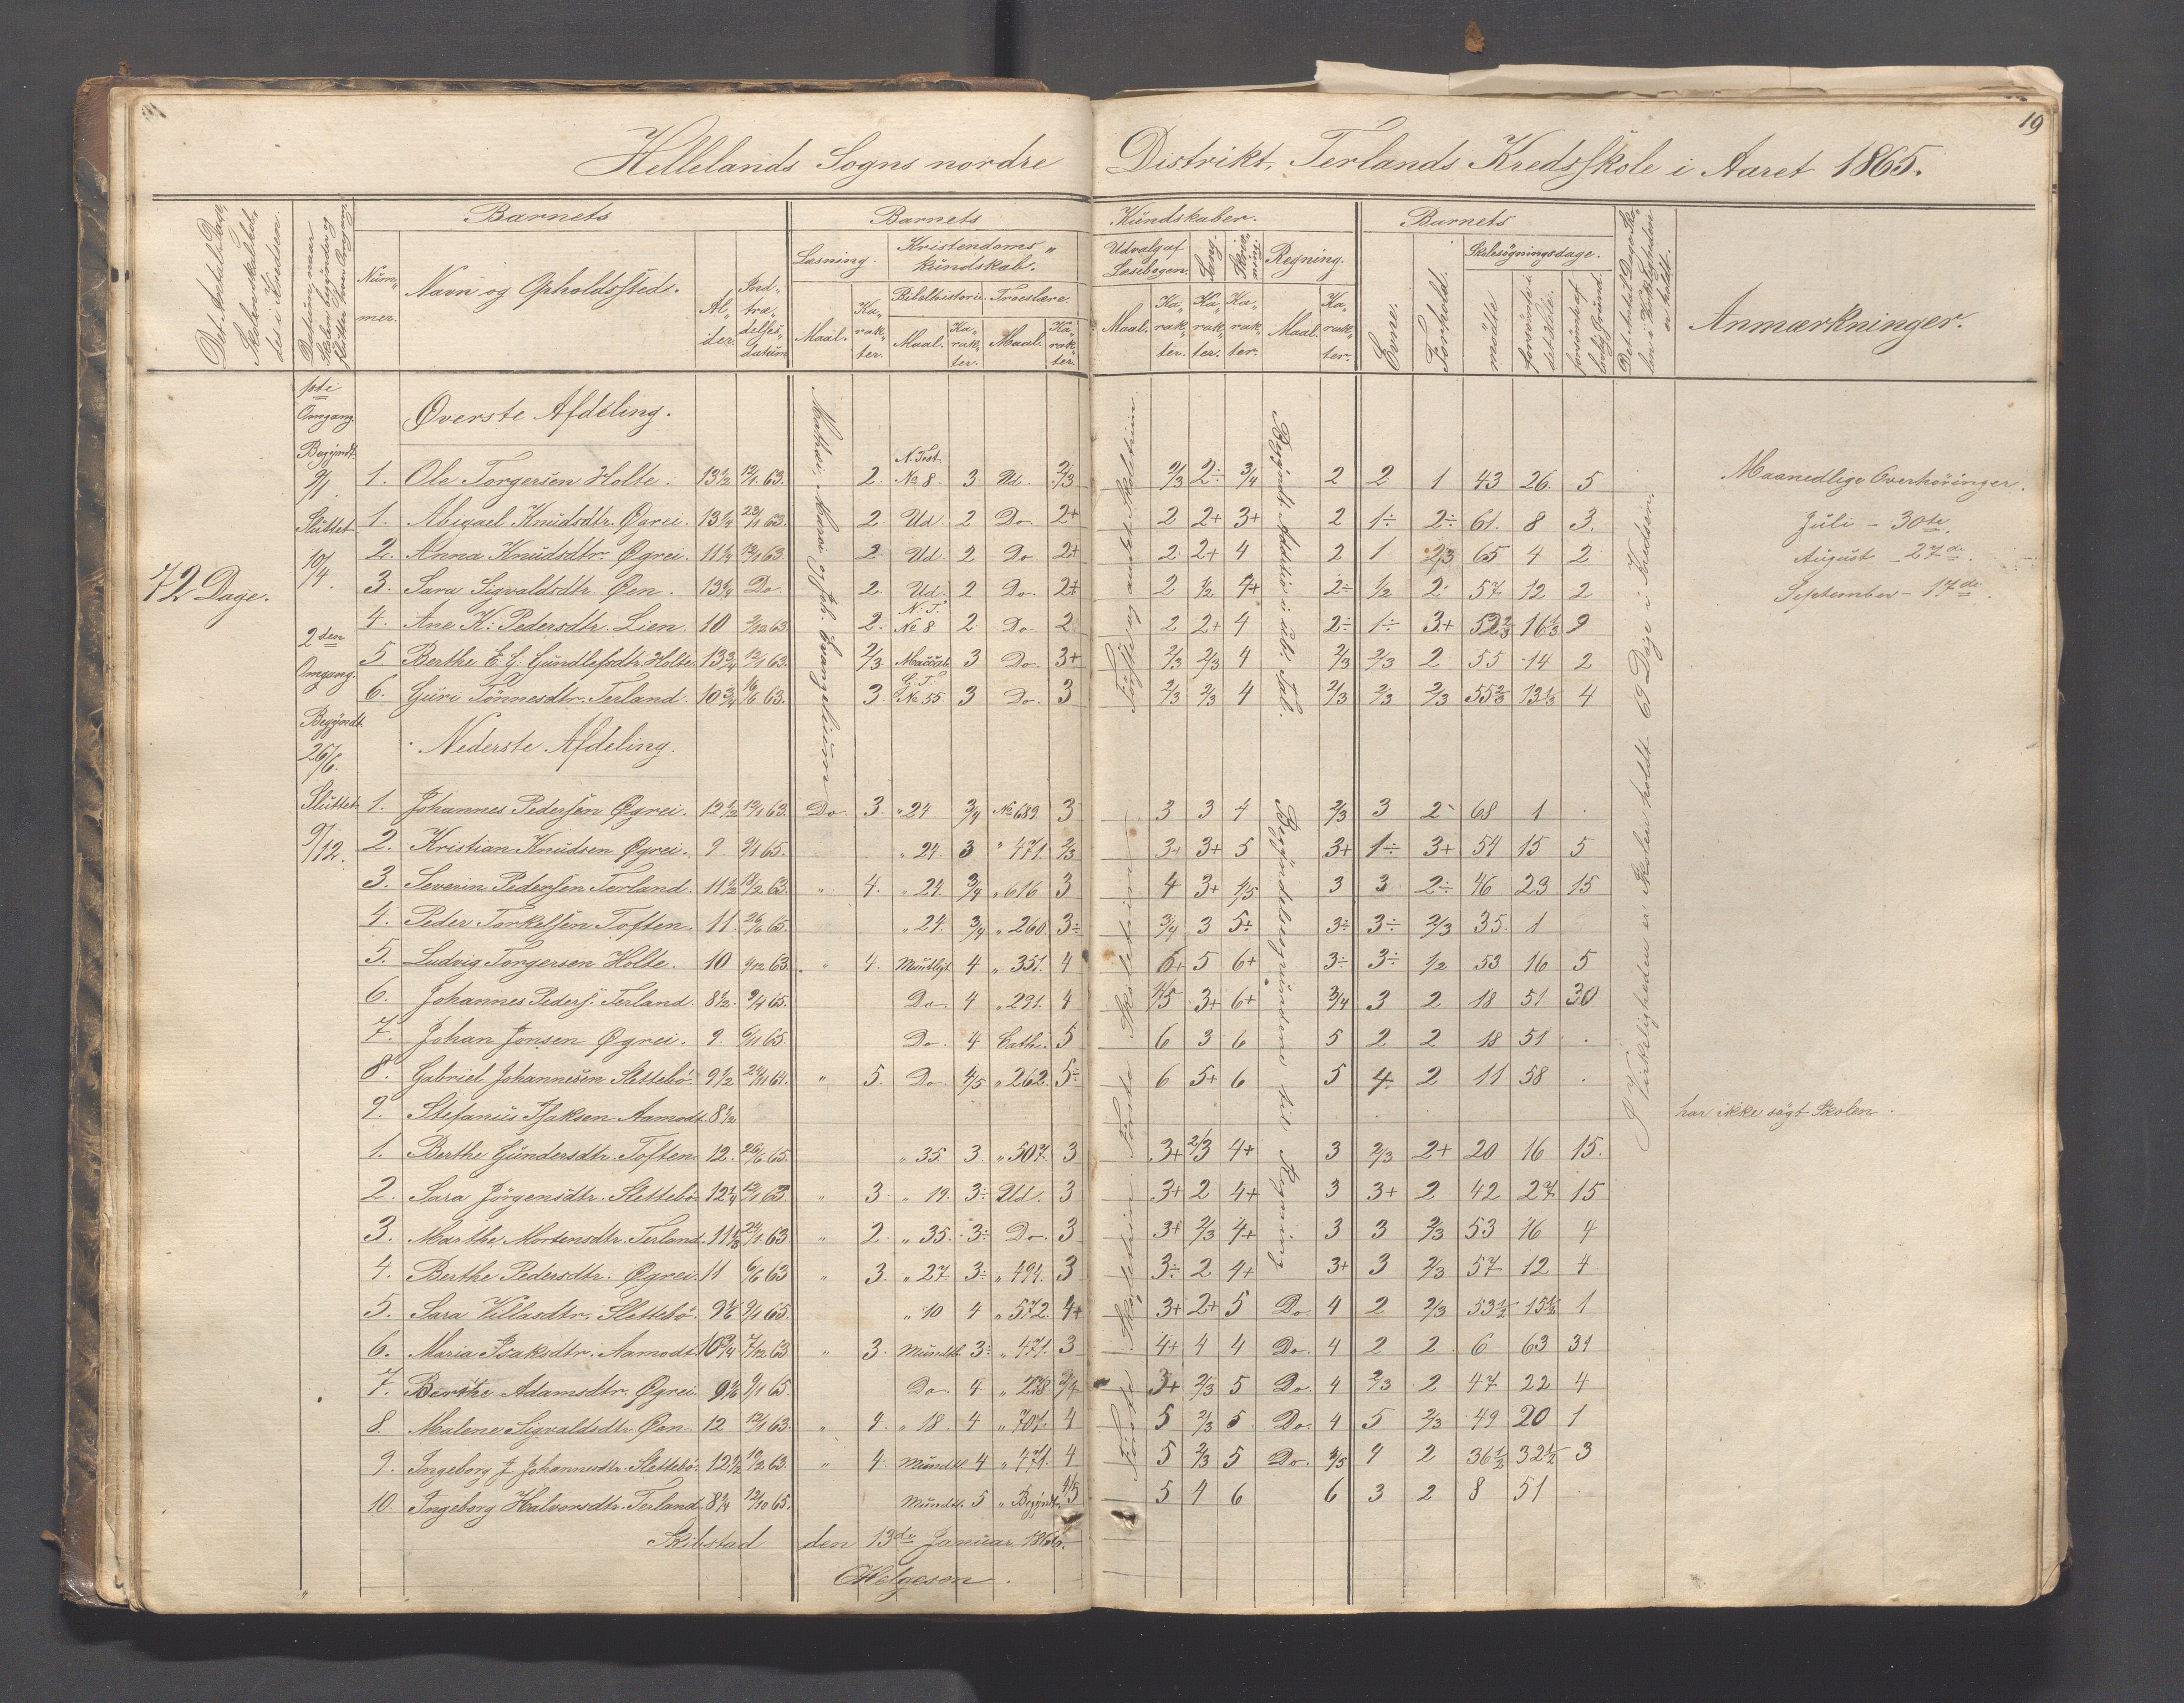 19
Hellelands Sogns nordre Distrikt, Terlands Kredsskole i Aaret 1865.
Det Antal Dage, Skolen skal holdes i Kredsen.
Datum, naar Skolen begynder og slutter hver Omgang.
Barnets
Nummer.
Navn og Opholdssted.
Alder.
Indtrædelsesdatum
Barnets Kundskaber.
Læsning. Kristendomskundskab. Udvalg af Læsebogen. Sang. Skrivning. Regning.
Bibelhistorie. Troeslære.
Maal. Karakter. Maal. Karakter. Maal. Karakter. Maal. Karakter. Karakter. Karakter. Maal. Karakter.
Barnets
Evne. Forhold. Skolesøgningsdage.
mødte forsømte i det Hele. forsømt af lovlig Grund.
Det Antal Dage Skolen i Virkeligheden er holdt.
Anmærkninger.
72 Dage.
1ste Omgang
Begyndt 9/1.
Sluttet 10/4.
2den Omgang.
Begyndt 26/6.
Sluttet 9/12.
Mathæi, Marci og Joh. Evangelium
Første og andet Skoletrin.
Begyndt Addition i ub. Tal.
I Virkeligheden er Skolen holdt 69 Dage i Kredsen.
Øverste Afdeling.
1. Ole Torgersen Holte. 13½ 12/1 63. 2. N. Test. No 8. 3 Ud. 2/3 2/3 2÷ 3/4 2 2 1 43 26. 5
Maanedlige Overhøringer.
1. Abigael Knudsdtr. Øgrei. 13¼ 23/1 63. 2 Ud 2 Do. 2+ 2 2+ 3+ 2 1÷ 2÷ 61. 8 3.
Juli - 30te.
2. Anna Knudsdtr. Øgrei. 11¼ 12/1 63 2 Ud 2 Do. 2+ 2 2+ 4 2 1 2/3 65 4 2
August - 27de.
3. Sara Sigvaldsdtr. Øen. 13¼ Do 2. Ud. 2 Do. 2+ 2 1/2 4+ 2÷ 1/2 2 57 12 2
September - 17de.
4. Ane K: Pedersdtr. Lien. 10 2. N. T. No 8 2 Do. 2 2 2+ 4 2÷ 1÷ 3+ 52⅔ 16⅓ 9
5. Berthe E. G. Gundlefsdtr. Holte. 13¾ 12/1 63. 2/3 Maccab. 3 Do. 3+ 2/3 2/3 4 2/3 2/3 2 55 14 2
6. Guri Tönnesdtr. Terland. 10¾ 16/6 63. 3. G. T. No 55. 3 Do. 3 2/3 2/3 4 2/3 2/3 2/3 55⅔ 13⅓ 4
Nederste Afdeling.
Første Skoletrin
Begyndelsesgrundene til Regning
1. Johannes Pedersen Øgrei. 12½ 12/1 63. Do. 3. " 24 3/4 No 689. 3 3 3 4 2/3 3 2 68 1 .
2. Kristian Knudsen Øgrei. 9 9/1 65. " 24. 3 " 471. 2/3 3+ 3+ 5 3+ 1÷ 3+ 54 15 5
3. Severin Pedersen Terland. 11½ 18/2 63. " 4. " 24. 3/4 " 616 3 4 3+ 4/5 3 3 2÷ 46 23 15
4. Peder Torkelsen Toften. 11. 26/6 65. " 24. 3/4 " 260. 3÷ 3/4 3 5+ 3÷ 3÷ 2/3 35. 1
5. Ludvig Torgersen Holte. 10 9/12 63. " 4. Mundtligt. 4 " 351. 4 6+ 5 6+ 3÷ 3÷ 1/2 53 16 5
6. Johannes Peders. Terland. 8½. 9/4 65. Do 4 " 291. 4 4/5 3+ 6+ 3/4 3 2 18 51 30
7. Johan Jonsen Øgrei. 9. 6/11 65. Do. 4 Cath. 5 6 3 6 5 2 2 18 51 .
8. Gabriel Johannesen Slettebö. 9½ 24/11 64. " 5. Do. 4/5 " 262. 5÷ 6 5+ 6 5 4 2 11 58 .
9. Stefanus Isaksen Aamodt. 8½ har ikke søgt Skolen.
1. Berthe Gundersdtr. Toften. 12. 26/6 65. " 35. 3. " 507. 3 3+ 2/3 4+ 3 2/3 2+ 20 16 15.
2. Sara Jörgensdtr. Slettebö. 12¼ 12/1 63. " 3. " 19. 3÷ Ud. 3 3+ 2 4+ 3 3+ 2 42 27 15
3. Marthe Mortensdtr. Terland. 11⅓ 24/1 63 " 2. " 35. 3÷ Do. 3 3+ 2/3 4+ 3 3 2/3 53 16 4
4. Berthe Pedersdtr. Øgrei. 11 6/6 63 " 3. " 27. 3÷ " 494. 3 3÷ 2 4+ 3+ 3 2/3 57 12 4
5. Sara Villasdtr. Slettebö. 9/1 65. " 10 4 " 572. 4+ 3+ 2+ 5 Do. 4 2 2/3 53½ 15½ 1
6. Maria Isaksdtr. Aamodt. 10¾ 7/12 63 " 3. Mundtl. 3÷ " 471. 3 4+ 4 4 Do. 4 2 2 6 63 31
7. Berthe Adamsdtr. Øgrei. 9/1 65. Do. 4 " 278. 3/4 3+ 2/3 5 Do. 4 2/3 2 47 22 4
8. Malene Sigvaldsdtr. Øen. 12 12/1 63. " 4. " 18. 4 " 707. 4 5 2/3 5 Do. 4 5 2/3 49 20 1
9. Ingeborg J. Johannesdtr. Slettebö. 12½ 18/2 63. " 4. Mundtl. 4 " 471. 4 5 2/3 5 Do. 4 2 36½ 32½ 3
10. Ingeborg Halvorsdtr. Terland. 8¼ 12/10 65. Mundtl. 5 " Begyndt. 4/5 5 4 6 6 3 2 8 51
Skibstad den 13de Januar 1866.
Helgesen.